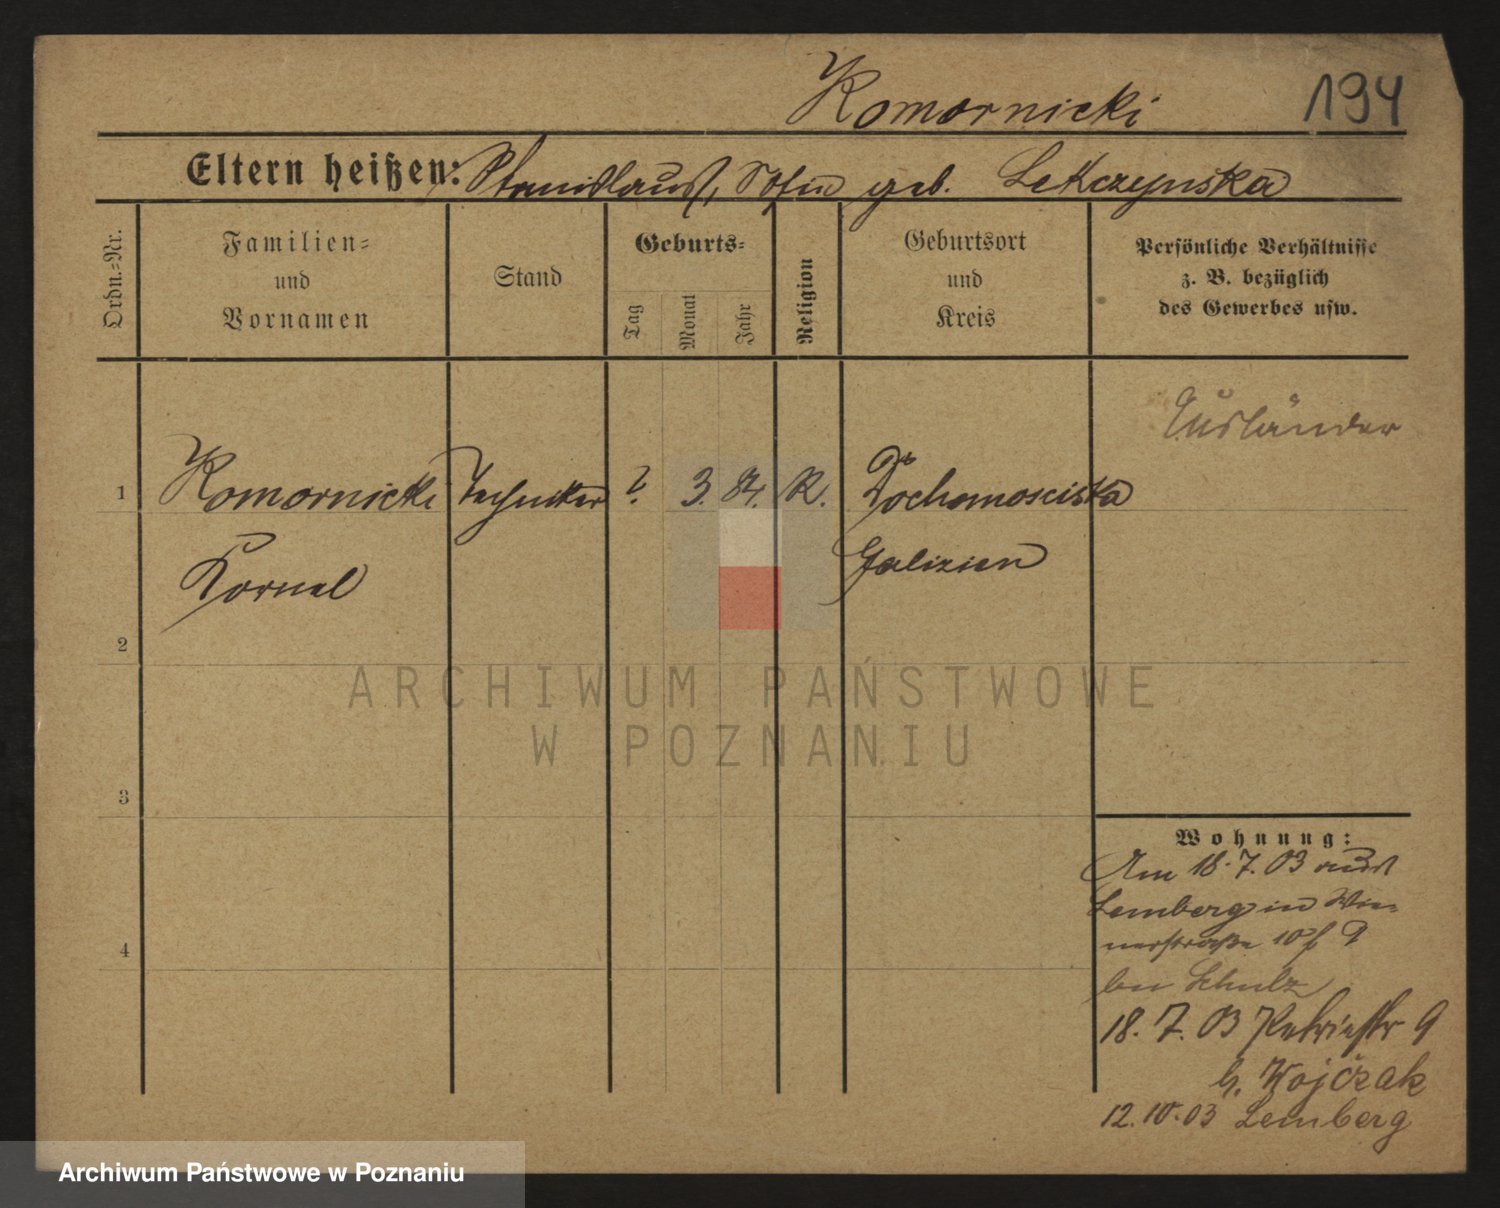 Komornicki 194
Eltern heißen: Stanislaus, Sofia geb. Lekczynska
Ordn.=Nr.
Familien=
und
Vornamen
Stand
Geburts=
Tag
Monat
Jahr
Religion
Geburtsort
und
Kreis
Persönliche Verhältnisse
z. B. bezüglich
des Gewerbes usw.
Ausländer
1 Komornicki Techniker ? 3. 84. K.
Kornel Galizien
2
3
4
ARCHIWUM PAŃSTWOWE
W POZNANIU
Wohnung:
Am 18.7.03 aus
Lemberg in Wie=
nerstraße 9
bei Schulz
18.7.03 Petristr 9
b. Wojczak
12.10.03 Lemberg
Archiwum Państwowe w Poznaniu